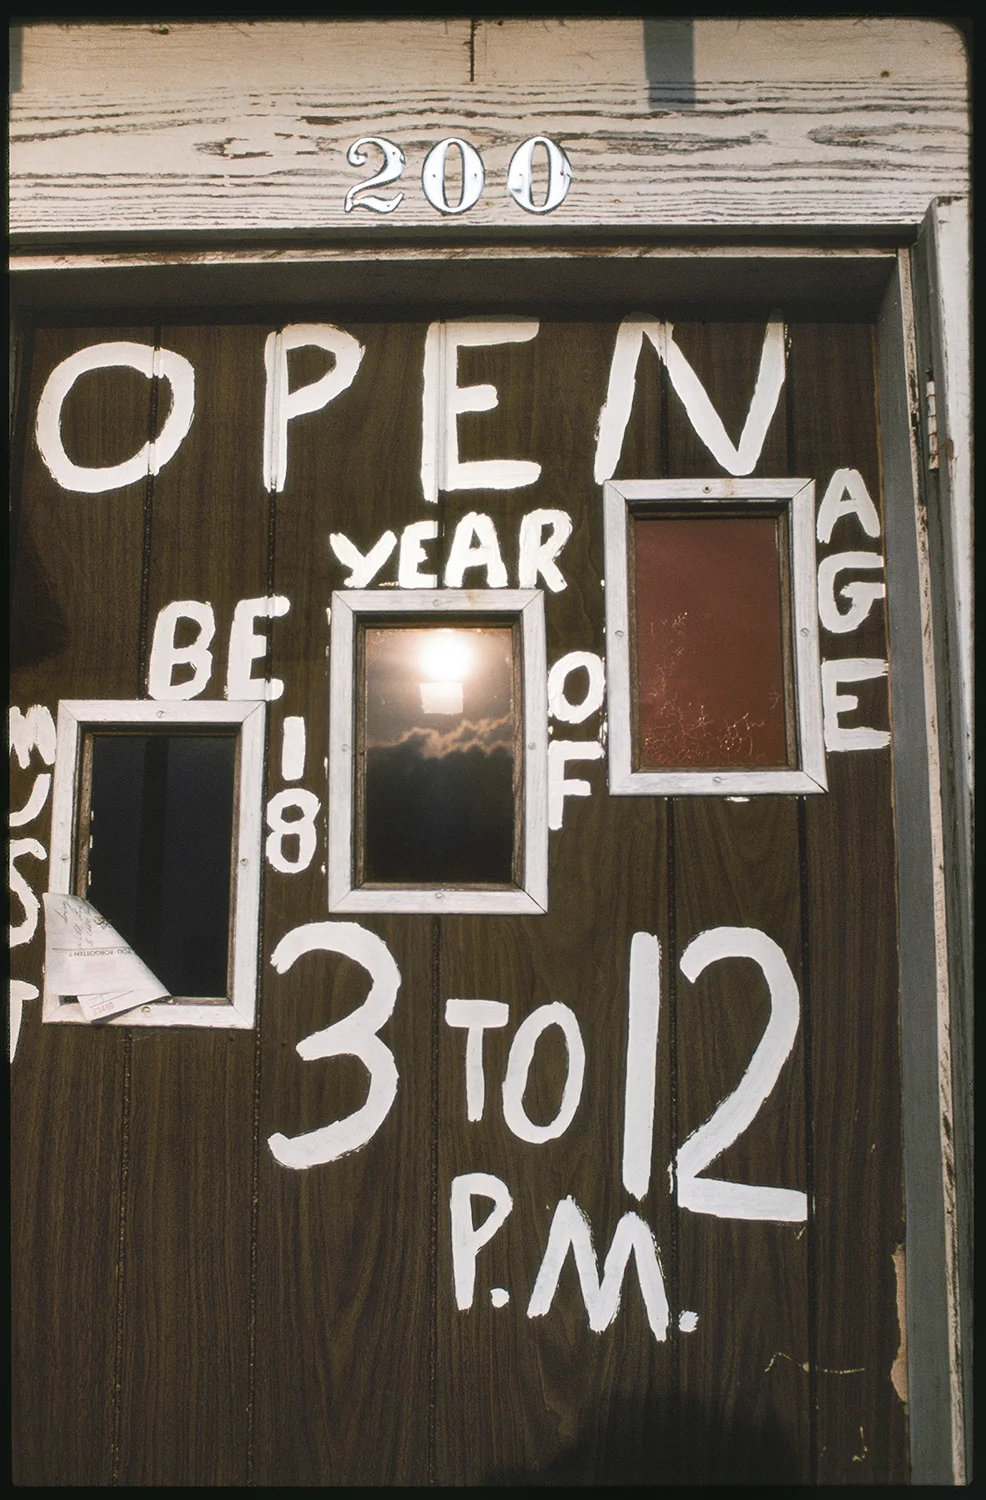 200
OPEN
MUST
BE
18
YEAR
OF
AGE
3 TO 12
P.M.
YOU FORGOTTEN?